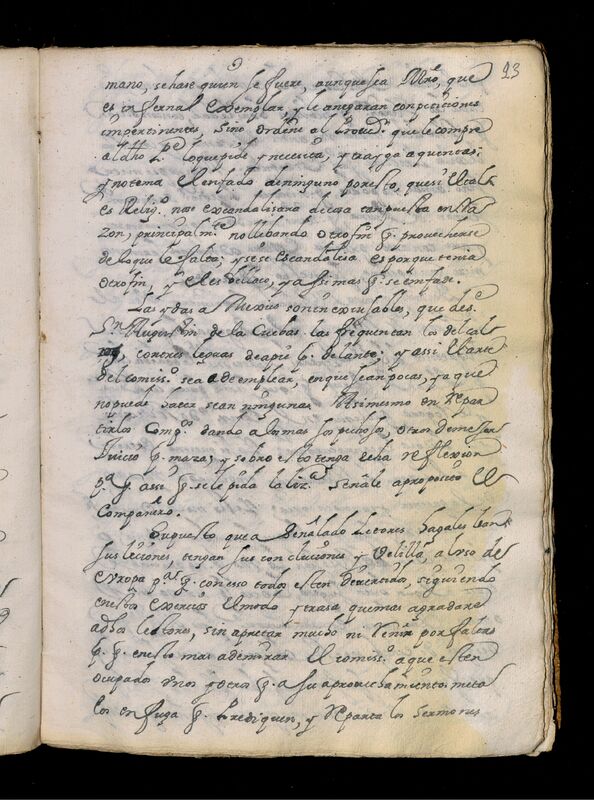 23
mano, sehase quien se fuere, aunque sea Mro, que
es infernal exemplar, y le anegaran con peticiones
impertinentes, sino ordene al Procudr que le compre
al dho Pe loque pide y necesita, y traiga a quentas;
y no tema el enfado de ninguno por esto, que si el tal
es Religo no se escandalisara de cosa tan puesta en Ra
zon, principalmte no llebando otro fin q. probeherse
de loque le falta; y si se escandalisa es porque tenia
otro fin, y el es bellaco, y assi mas q. se enfade.
Las ydas a Mexico son inexcusables, que desde
Sn Augustin de la Cuebas las frequentan los del cal
con tres leguas de a pie q. delante; y assi el arte
del comisso se a de emplear, en que sean pocas, ya que
no puede hacer sean ningunas. Asimesmo en Repar
tirlos Compo dando a los mas sospechosos, otros de mejor
Juicio q. maza; y sobre esto tenga hecha reflexion
pa q. assi q. se le pida la liza señale aproposito el
Compañero.
Supuesto que a señalado Letores, hagales lean
sus lectiones, tengan sus concluciones y Velilla, al uso de
Europa pa q. con esso todos esten divertidos, siguiendo
en estos exercicios el modo y trasa que mas agradare
a dhos letores, sin apretar mucho ni Renir por faltas
q. q. en esto mas ademirar el comisso a que esten
ocupados unos y otros q. a su aprovechamiento meta
los en fuga q. Prediquen, y Reparta los sermones